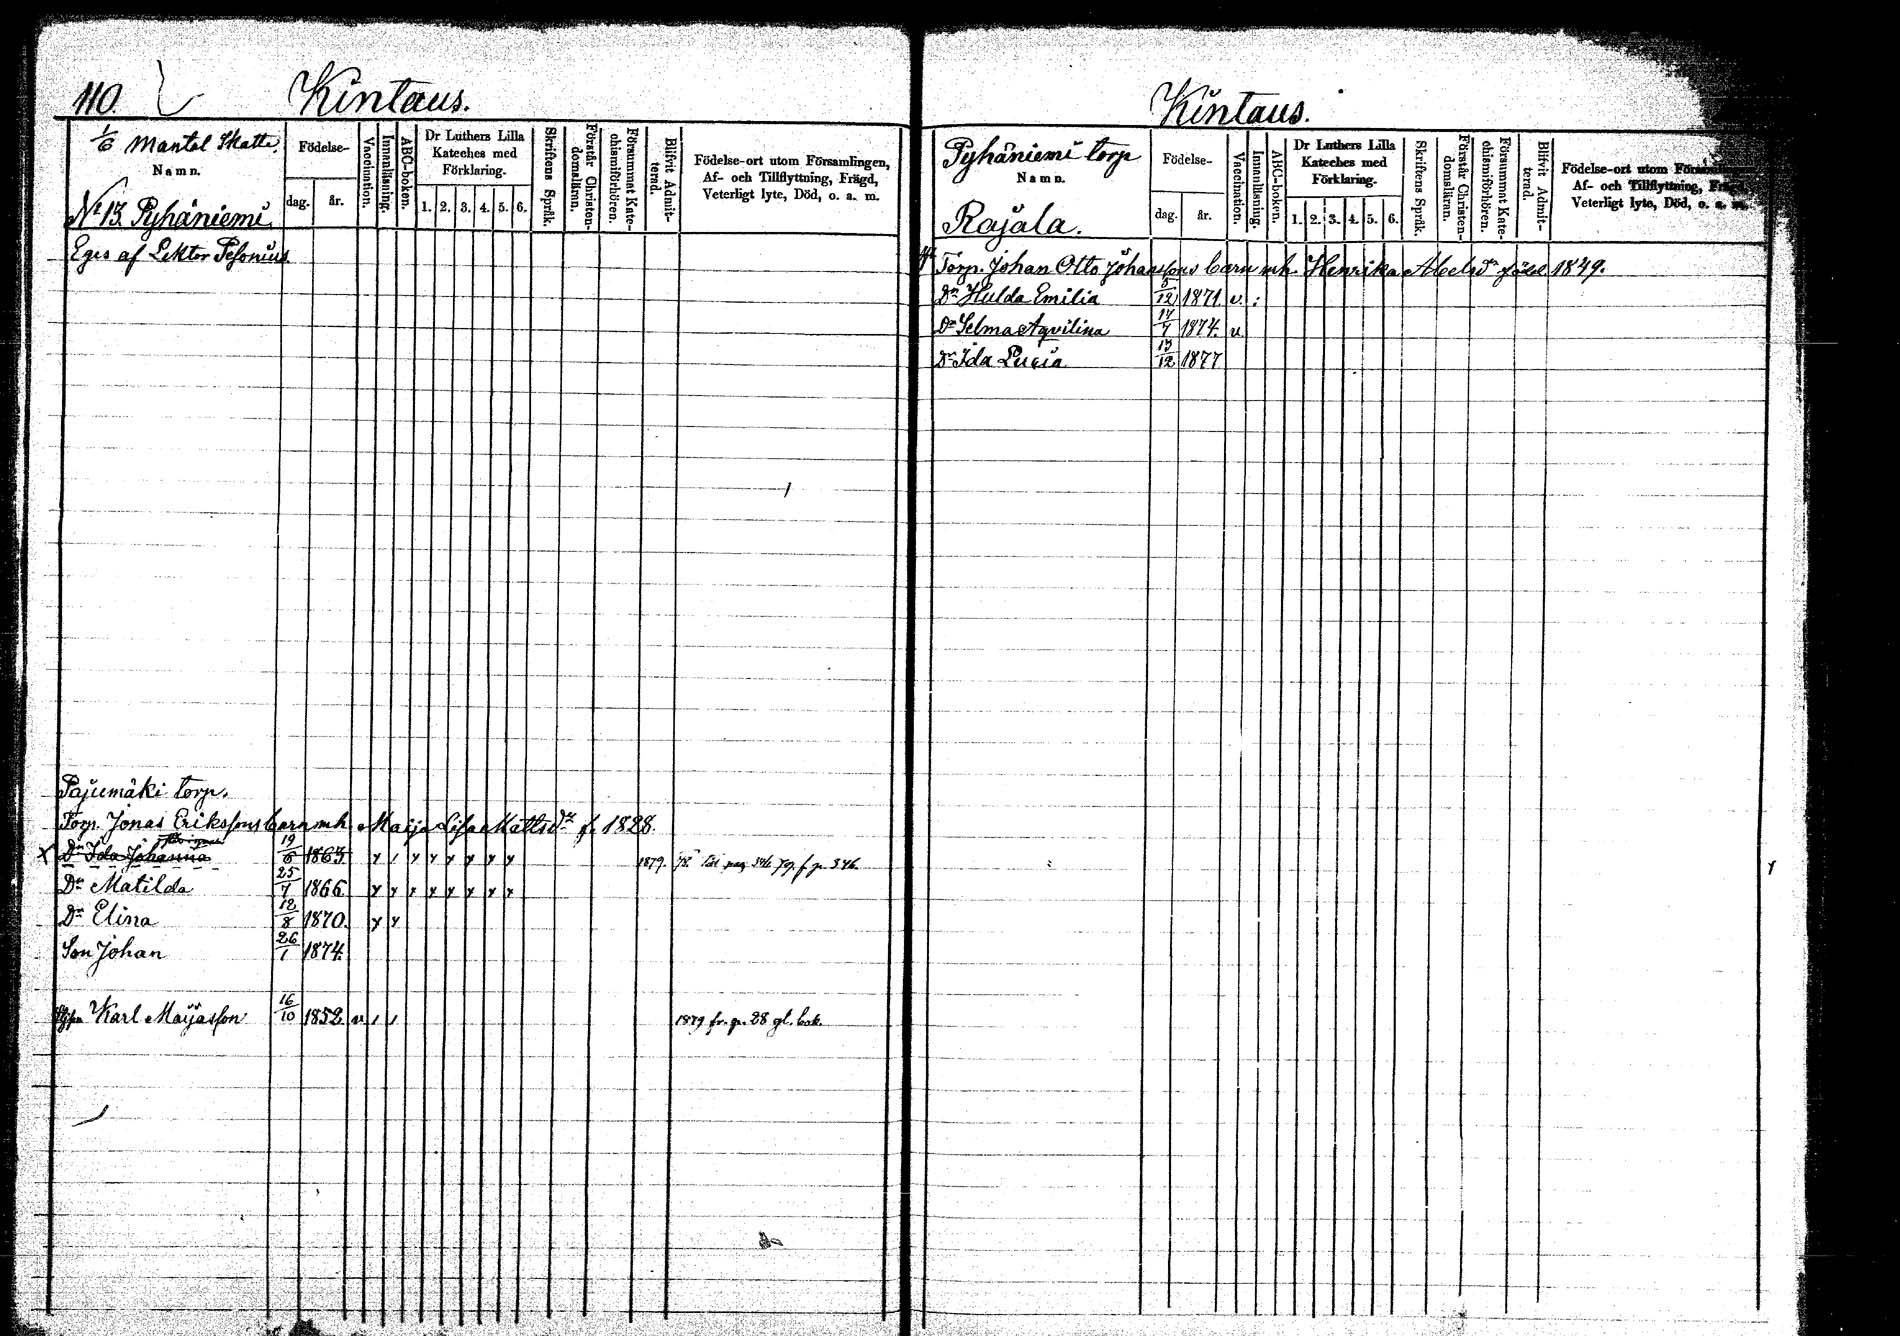 110.
Kintaus.
1/6 Mantal Skatte.
Namn.
No 13 Pyhäniemi
Födelse-
dag.
år.
Vaccination.
Innanläsning.
ABC-boken.
Dr Luthers Lilla
Kateches med
Förklaring.
1. 2. 3. 4. 5. 6.
Skriftens Språk.
Förstår Christen-
domsläran.
Försummat Kate-
chismiförhören.
Blifvit Admit-
terad.
Födelse-ort utom Församlingen,
Af- och Tillflyttning, Frägd,
Veterligt lyte, Död, o. a. m.
Eges af Lektor Pesonius.
Pajumäki torp.
Torp. Jonas Erikssons barn mh. Maija Lisa Mattsdr f. 1828.
x Dr Ida Johanna 19/6 1863 x 1 x x x x x x 1879.
Dr Matilda 25/7 1866 x x x x x x x x
Dr Elina 12/8 1870. x x
Son Johan 26/1 1874.
Karl Maijasson 16/10 1852 v 1 1 1879 fr. p. 28 gl. bok.
Kintaus.
Pyhäniemi torp
Namn.
Rajala.
Födelse-
dag.
år.
Vaccination.
Innanläsning.
ABC-boken.
Dr Luthers Lilla
Kateches med
Förklaring.
1. 2. 3. 4. 5. 6.
Skriftens Språk.
Förstår Christen-
domsläran.
Försummat Kate-
chismiförhören.
Blifvit Admit-
terad.
Födelse-ort utom
Af- och Tillflyttning, Frägd,
Veterligt lyte, Död, o. a. m.
Torp. Johan Otto Johanssons barn mh. Henrika Abelsdr född 1849.
Dr Hulda Emilia 5/12 1871. v. :
Dr Selma Aqvilina 17/7 1874. v
Dr Ida Lucia 13/12 1877